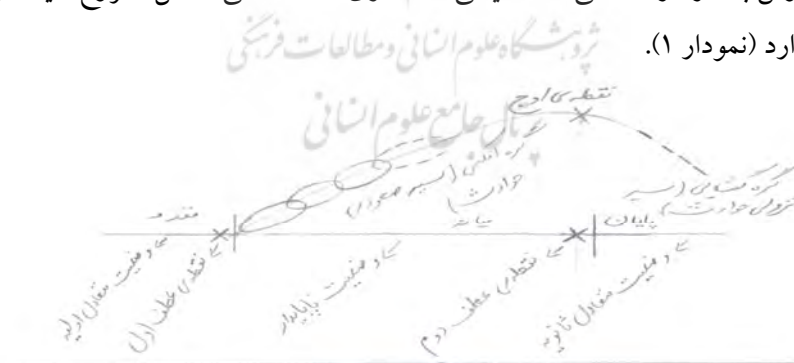 ارد (نمودار ۱).
پژوهشگاه علوم انسانی و مطالعات فرهنگی
پرتال جامع علوم انسانی
نقطه‌ی اوج
گره افکنی (سیر صعودی
حوادث)
گره گشایی (سیر
نزولی حوادث)
مقدمه
میانه
پایان
وضعیت متعادل اولیه
نقطه‌ی عطف اول
وضعیت ناپایدار
نقطه‌ی عطف دوم
وضعیت متعادل ثانویه